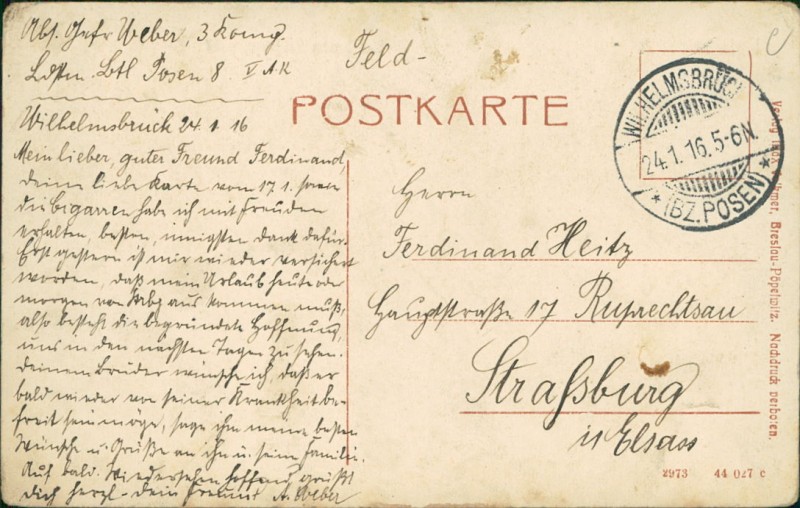 Abs. Gefr Weber, 3 Komp.
Ldstm. Btl Posen 8 V A.K
Feld-
POSTKARTE
WILHELMSBRÜCK
24.1.16.5-6N.
* (BZ. POSEN) *
Wilhelmsbrück 24.1.16
Mein lieber, guter Freund Ferdinand,
deine liebe Karte vom 17.1. sowie
die Cigarren habe ich mit Freuden
erhalten, besten, innigsten Dank dafür.
Erst gestern ist mir wieder versichert
worden, daß mein Urlaub heute oder
morgen von aus kommen muß,
also besteht die begründete Hoffnung,
uns in den nächsten Tagen zu sehen.
Deinem Bruder wünsche ich, daß er
bald wieder von seiner Krankheit be-
freit sein möge, sage ihm meine besten
Wünsche u. Grüße an ihn u. seine Familie.
Auf bald. Wiedersehen hoffend grüßt
dich herzl. dein Freund A. Weber
Herrn
Ferdinand Heitz
Hauptstraße 17 Ruprechtsau
Straßburg
i/ Elsass
Verlag Max Breslau-Pöpelwitz. Nachdruck verboten.
2973 44 027 c